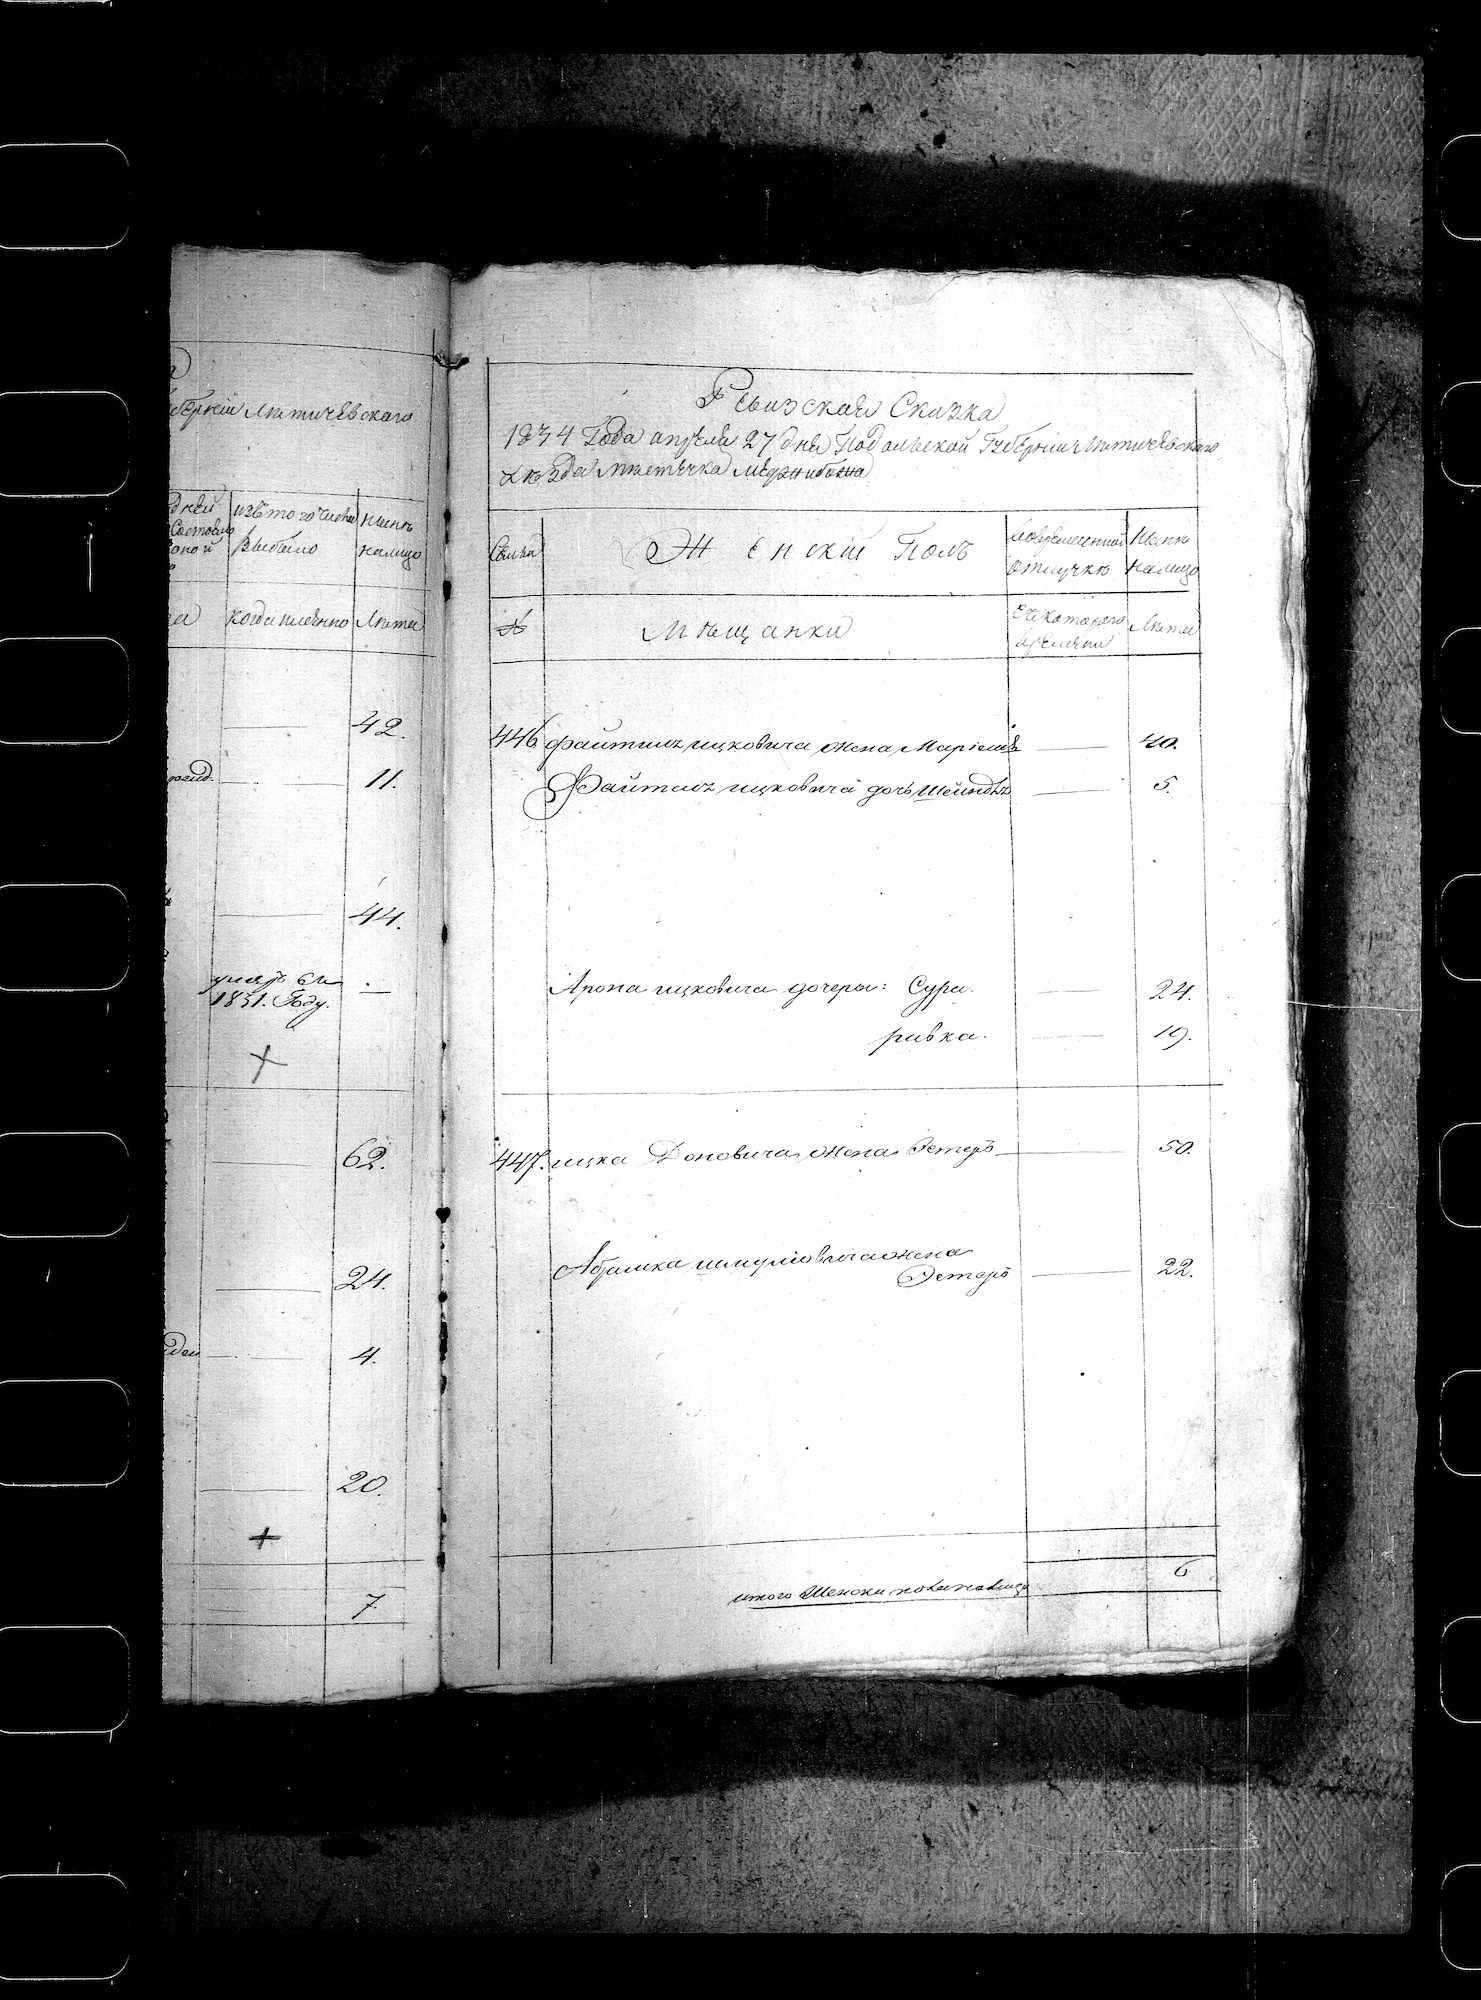 губерніи Литичевскаго
изъ того числа
выбыло
нынѣ
налицо
когда имянно
Лѣта
42.
11.
44.
умеръ въ
1831. Году.
62.
24.
4.
20.
7
Ревизская Сказка
1834 Года апреля 27 дня Подольской Губерніи Литичевскаго
уѣзда мѣстечка Меджибожа
Семьи
Женскій Полъ
Вовременной
отлучкѣ
Нынѣ
налицо
№
Мѣщанки
съ котораго
времяни
Лѣта
446 Файтиль ицковича жена Маріемъ 40.
Файтель ицковича дочь Шейндль 5.
Арона ицковича дочери: Сура. 24.
ривка. 19.
447. ицка Доновича жена Эстеръ 50.
Абрамка шмуліовича жена
Эстеръ 22.
итого Женска пола налицо 6